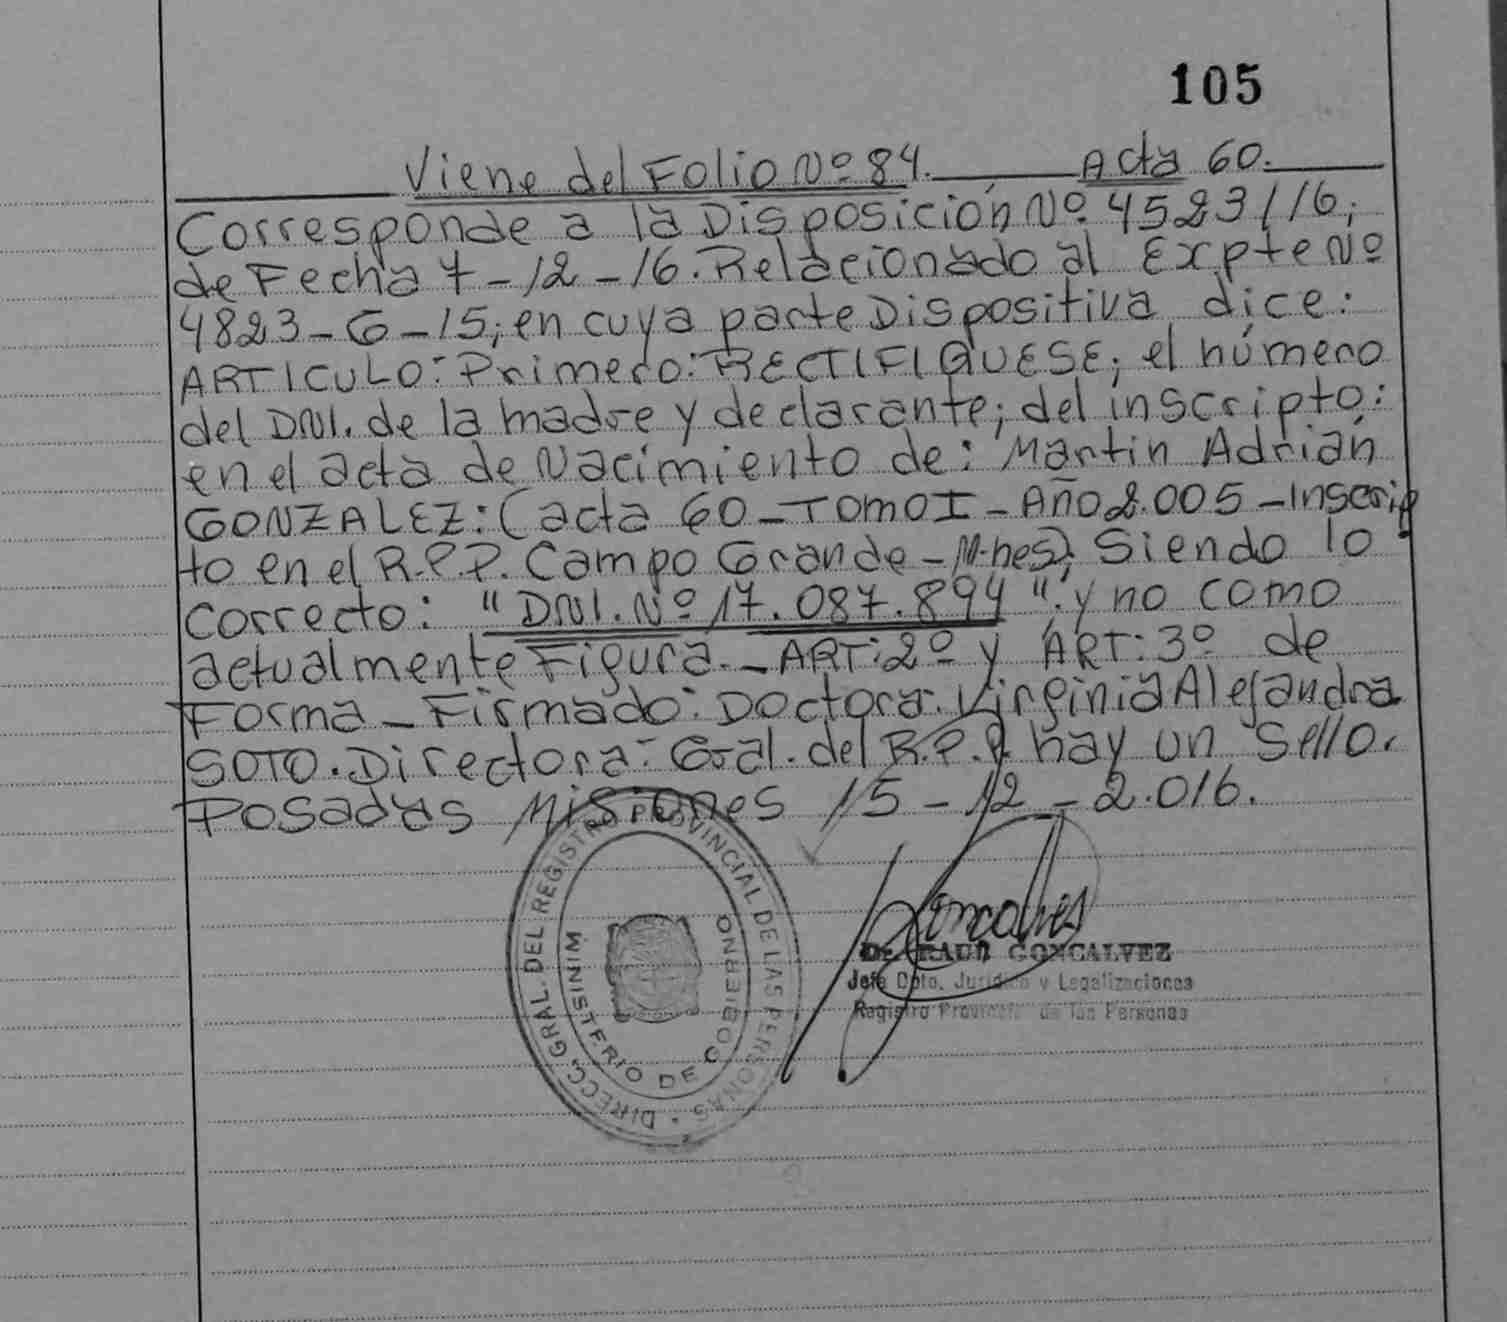 105
Viene del Folio Nº 84. Acta 60.
Corresponde a la Disposición Nº 4523/16;
de Fecha 7-12-16. Relacionado al Expte Nº
4823-G-15; en cuya parte Dispositiva dice:
ARTICULO: Primero: RECTIFIQUESE; el número
del DNI. de la madre y declarante; del inscripto:
en el acta de Nacimiento de: Martin Adrián
GONZALEZ: (acta 60-TOMO I-Año 2.005-Inscrip
to en el R.P.P. Campo Grande-M-nes). Siendo lo
correcto: "DNI. Nº 17.087.894". y no como
actualmente Figura.-ART: 2º y ART: 3º de
Forma-Firmado: Doctora: Virginia Alejandra
SOTO. Directora: Gral. del R.P.P. hay un sello.
Posadas Misiones 15-12-2.016.
DIRECC. GRAL. DEL REGISTRO PROVINCIAL DE LAS PERSONAS
MINISTERIO DE GOBIERNO
Goncalves
Dr. RAUL GONCALVEZ
Jefe Dpto. Jurídico y Legalizaciones
Registro Provincial de las Personas